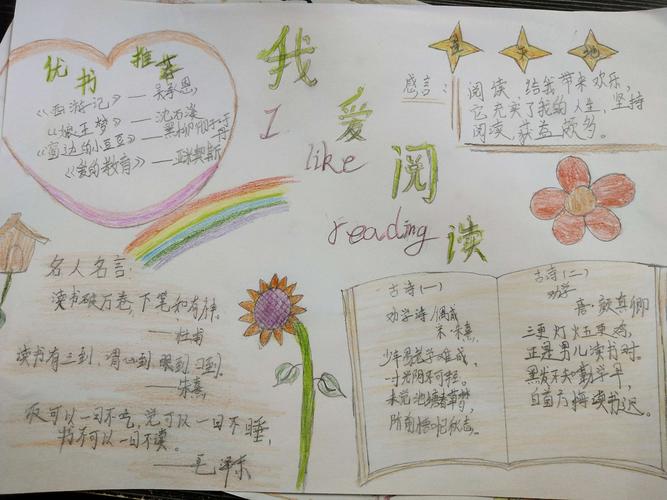 优书推荐
《西游记》——吴承恩,
《狼王梦》——沈石溪
《窗边的小豆豆》——黑柳彻子
《爱的教育》——亚米契斯
我爱阅读
I like reading
感言:
阅读,给我带来欢乐,
它充实了我的人生,坚持
阅读,获益颇多。
名人名言:
读书破万卷,下笔如有神,
——杜甫
读书有三到,谓心到眼到口到,
——朱熹
饭可以一日不吃,觉可以一日不睡,
书不可以一日不读。
——毛泽东
古诗(一)
劝学诗/偶成
宋·朱熹
少年易老学难成,
一寸光阴不可轻。
未觉池塘春草梦,
阶前梧叶已秋声。
古诗(二)
劝学
唐·颜真卿
三更灯火五更鸡,
正是男儿读书时。
黑发不知勤学早,
白首方悔读书迟。